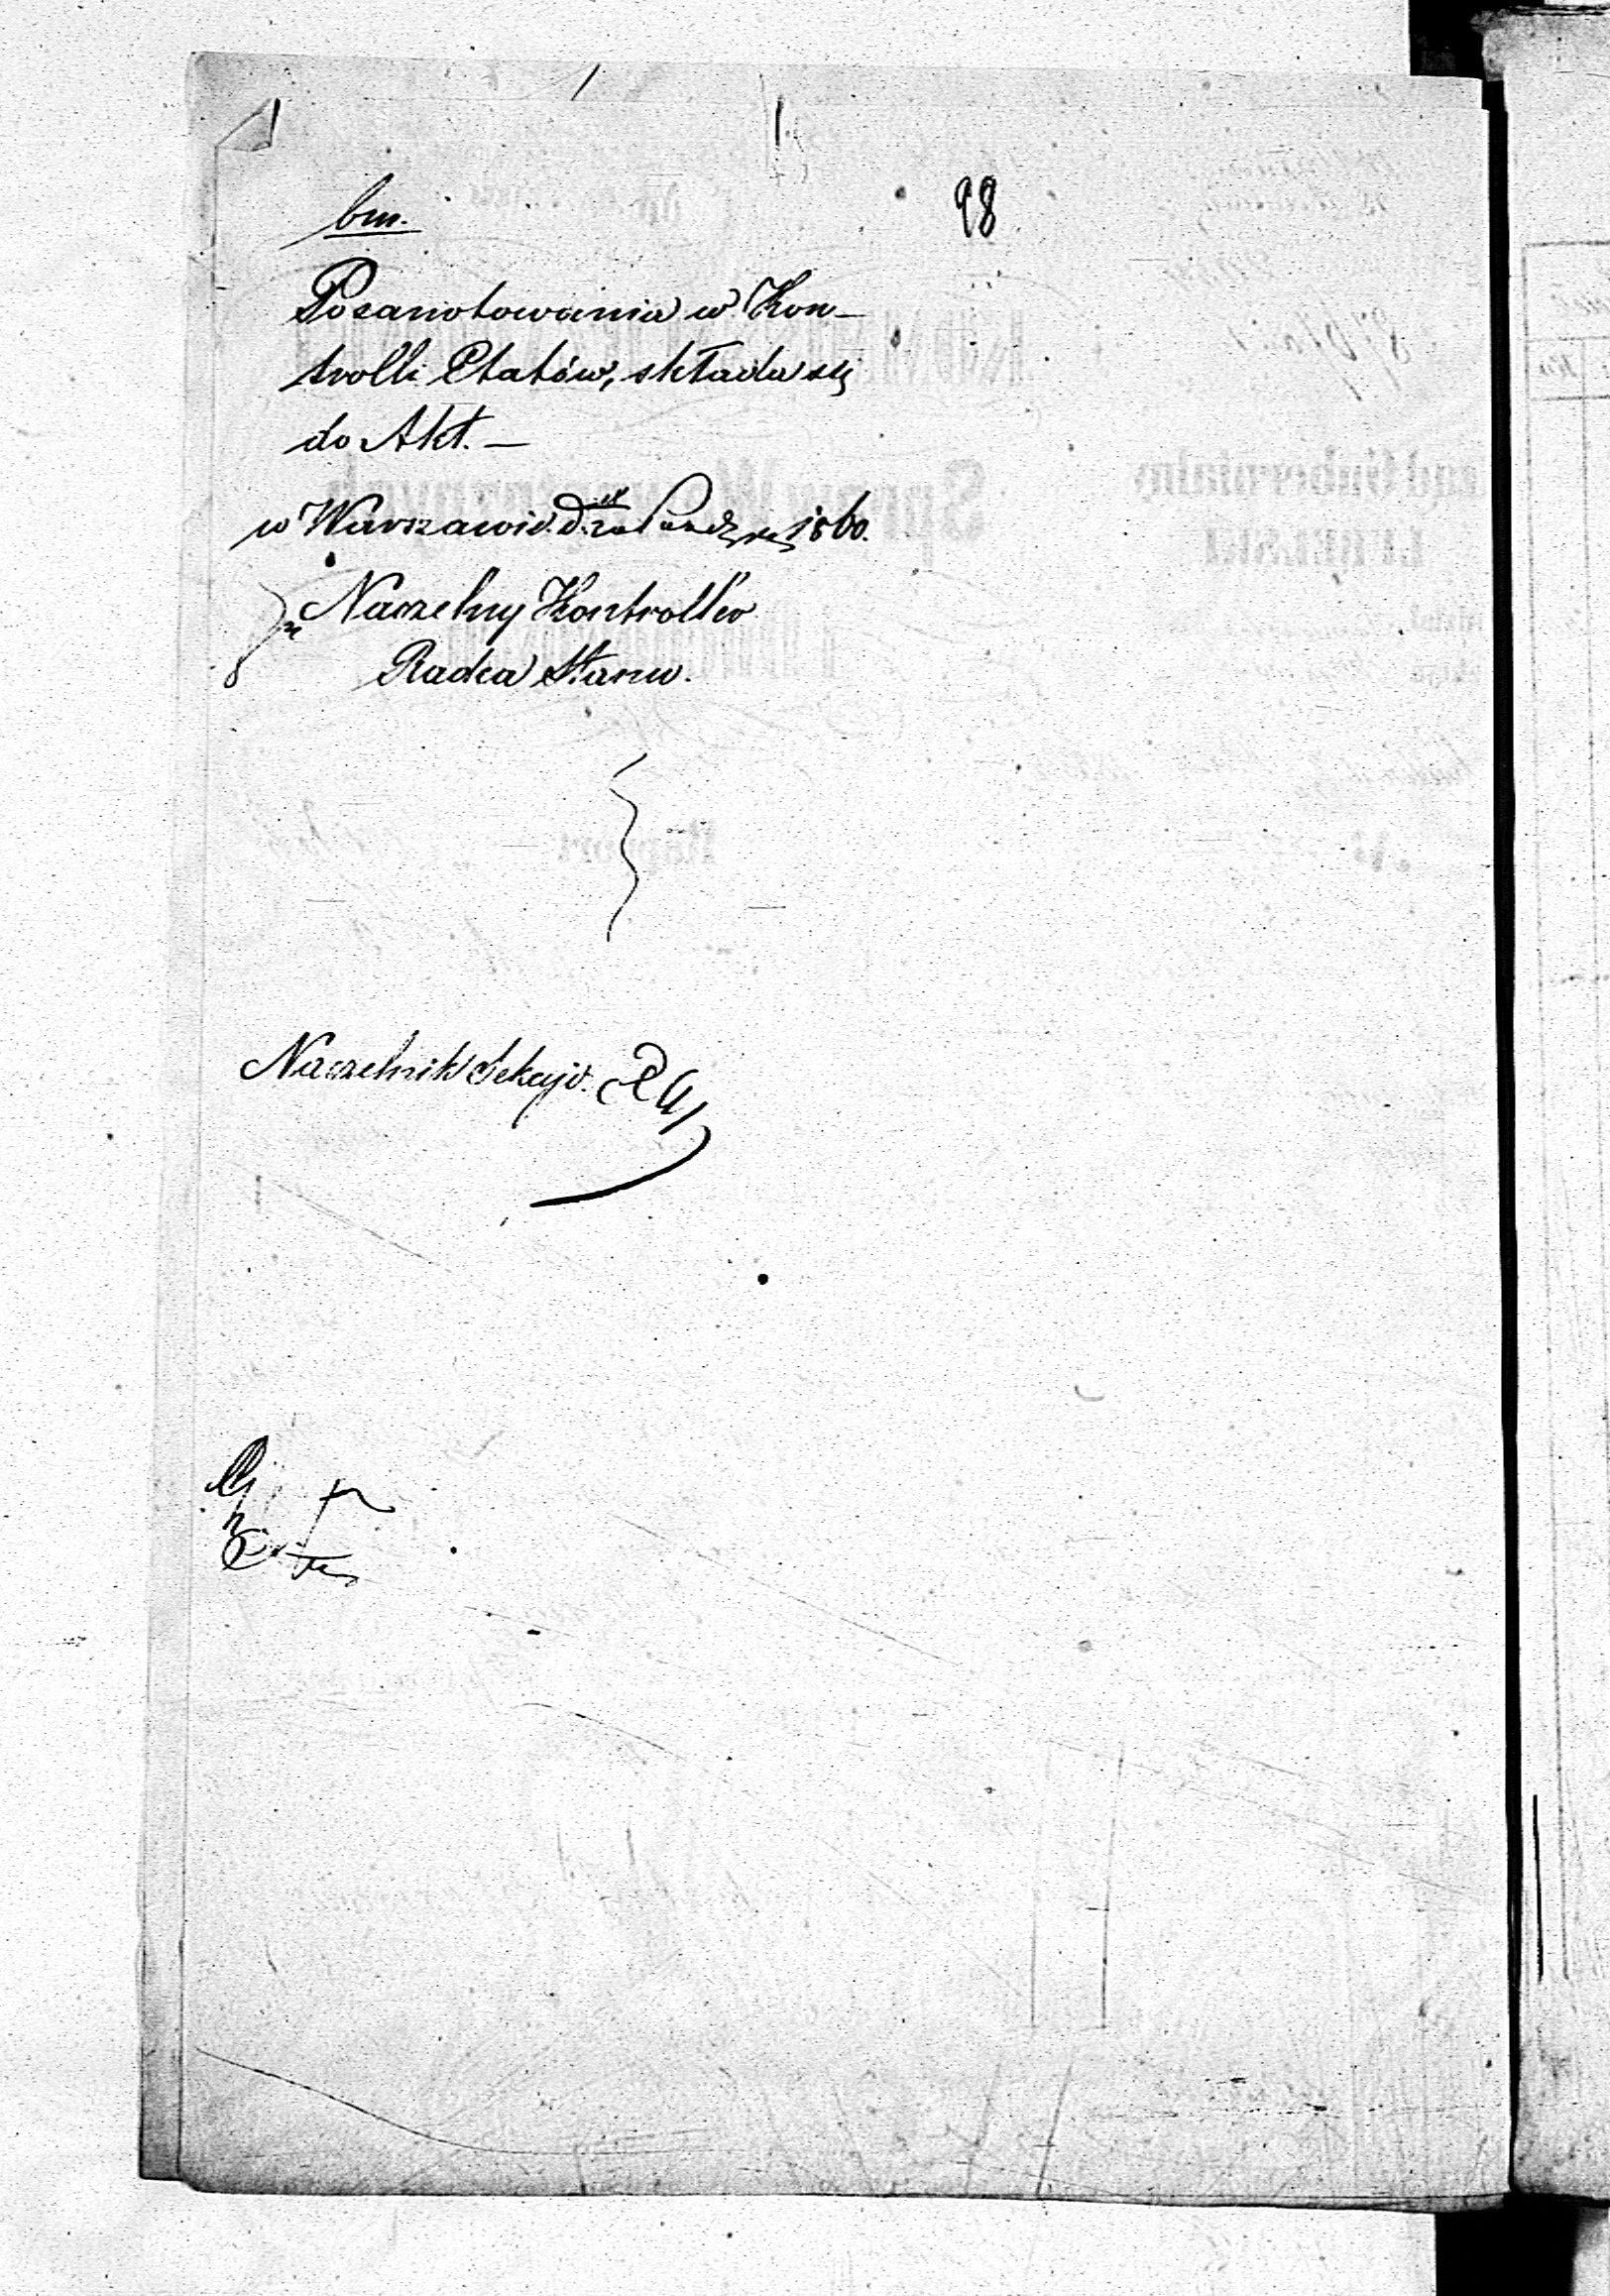 bm.
98
Po zanotowania w Kon-
trolli Etatów, składa się
do Akt. —
w Warszawie d. 1860.
Naczelny Kontroller
Radca Stanu.
Naczelnik Sekcyi.